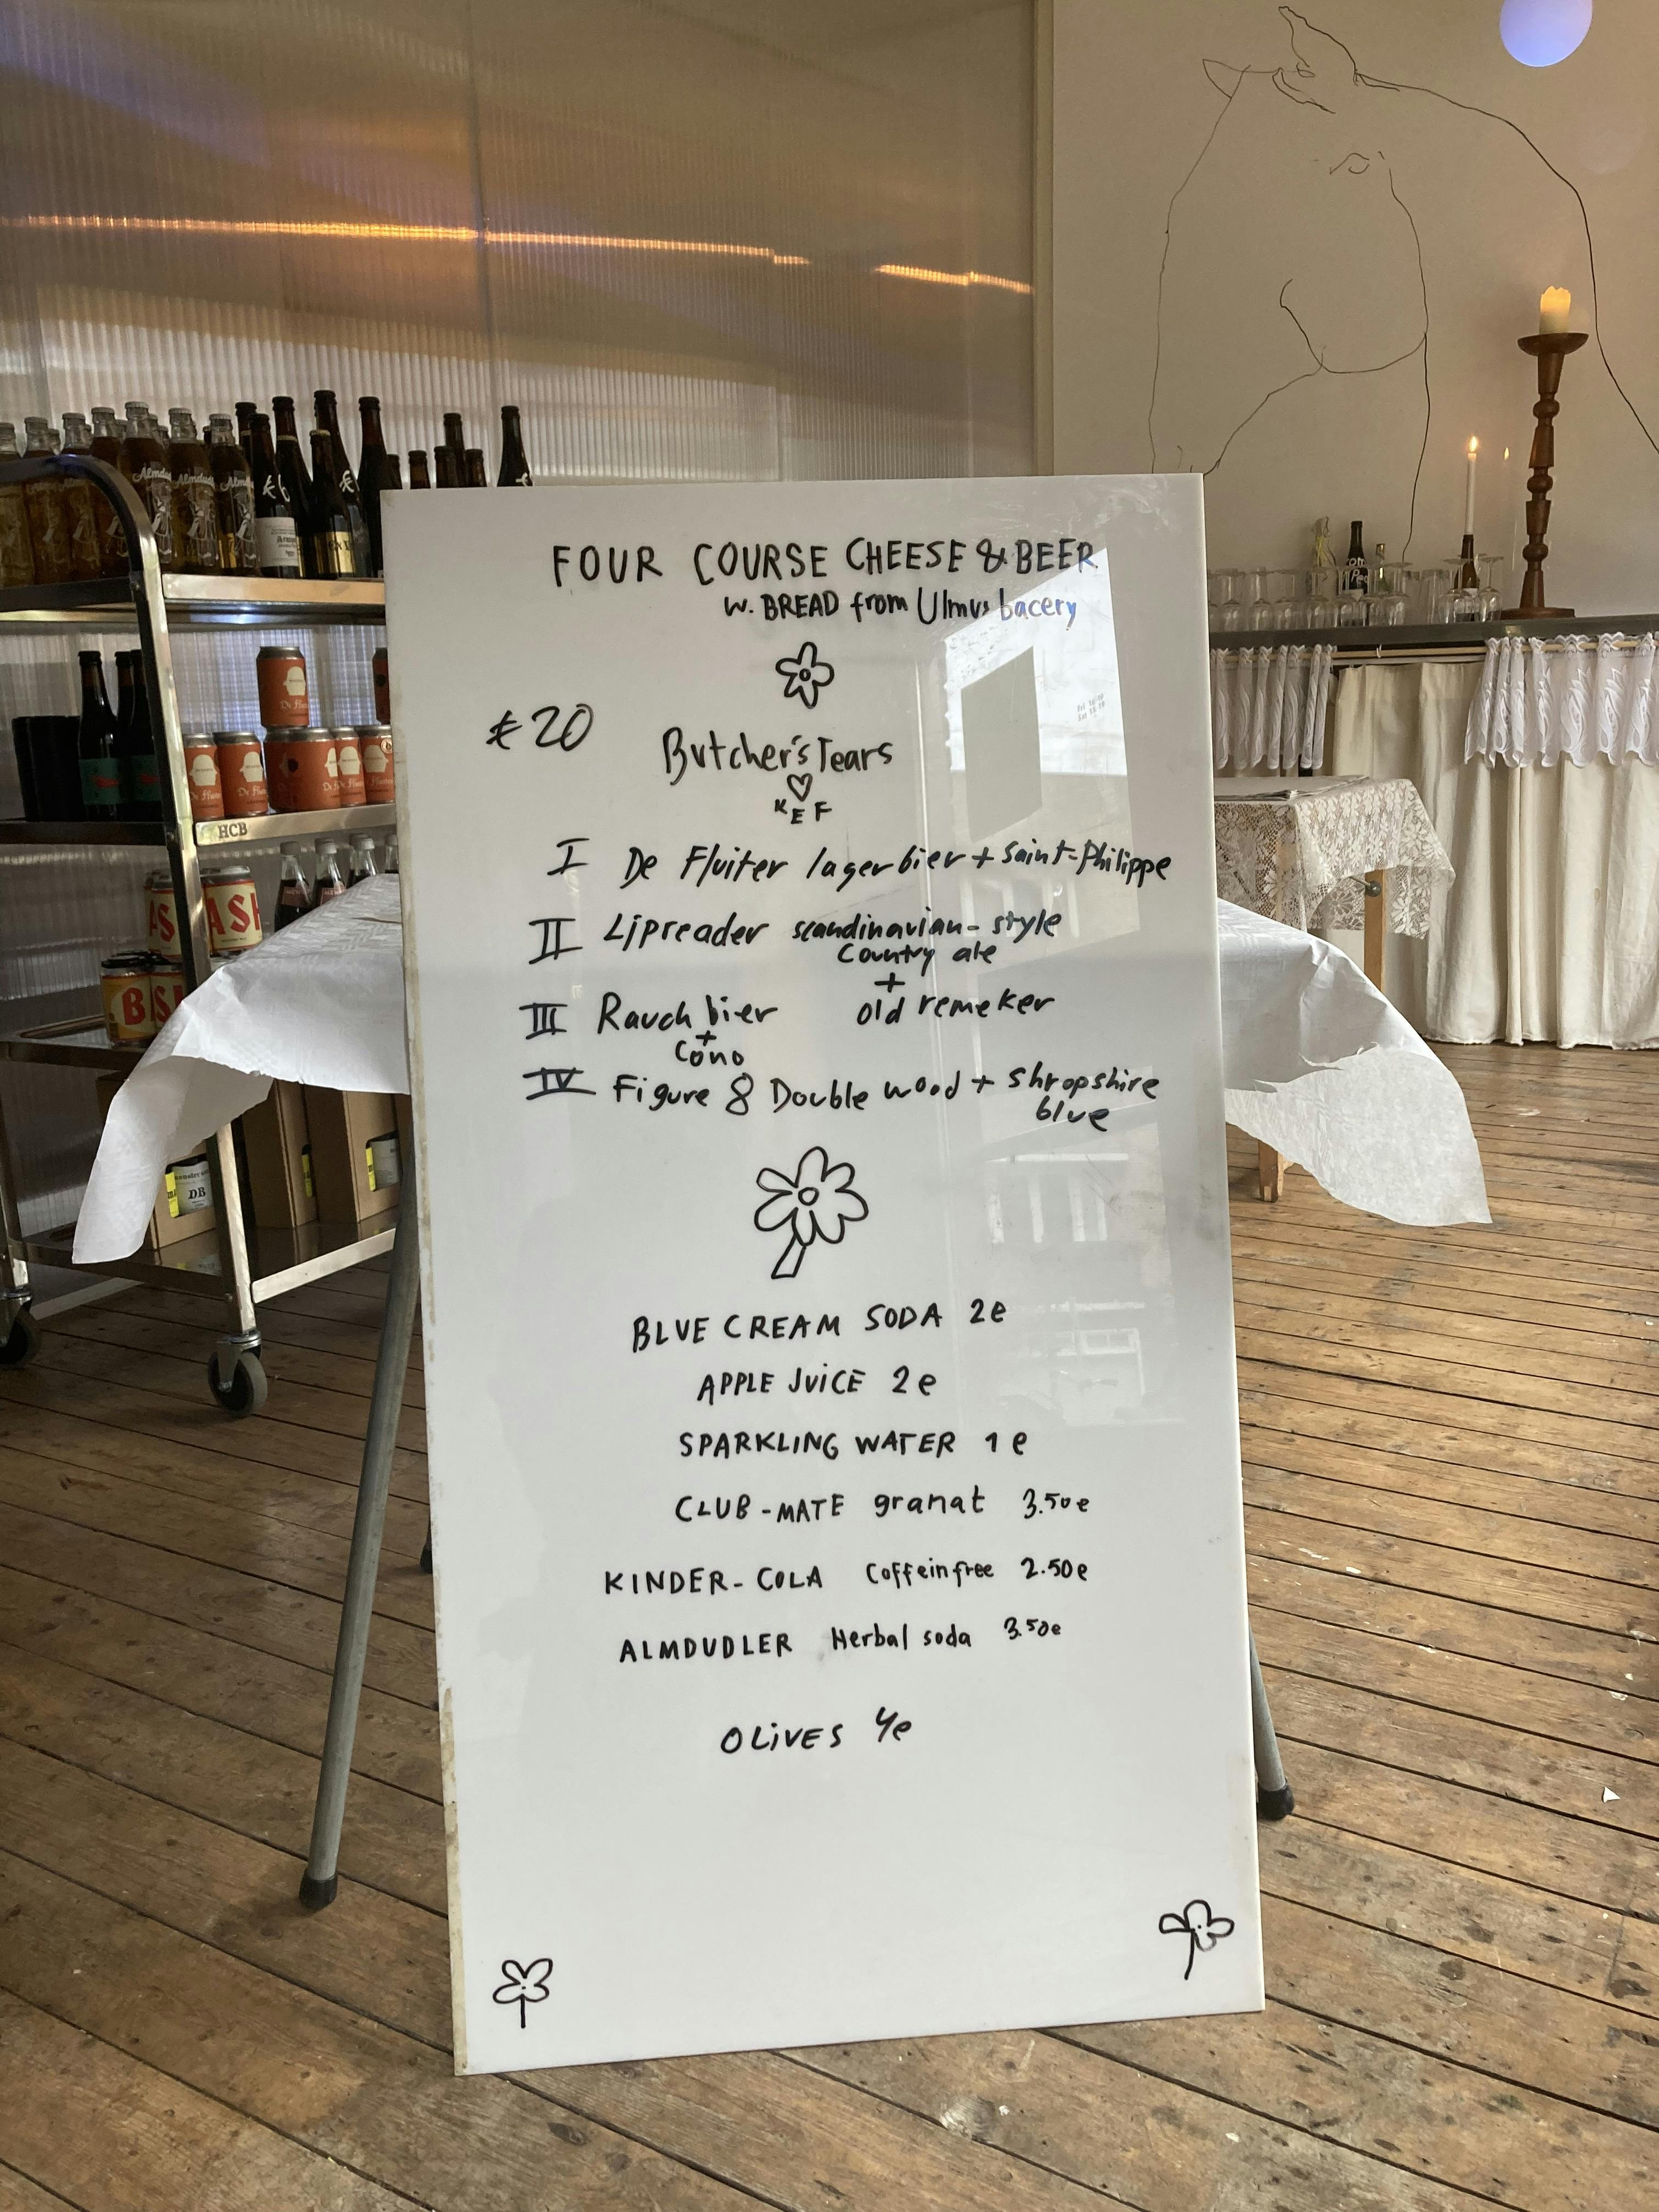 FOUR COURSE CHEESE & BEER
w. BREAD from Ulmus bacery
€20
Butcher's Tears
KEF
I De Fluiter lagerbier + Saint-Philippe
II Lipreader scandinavian-style
Country ale
+
old remeker
III Rauchbier
+
Cono
IV Figure 8 Double wood + Shropshire
blue
BLUE CREAM SODA 2e
APPLE JUiCE 2e
SPARKLING WATER 1e
CLUB-MATE granat 3.50e
KINDER-COLA Coffeinfree 2.50e
ALMDUDLER Herbal soda 3.50e
OLiVES 4e
HCB
DB